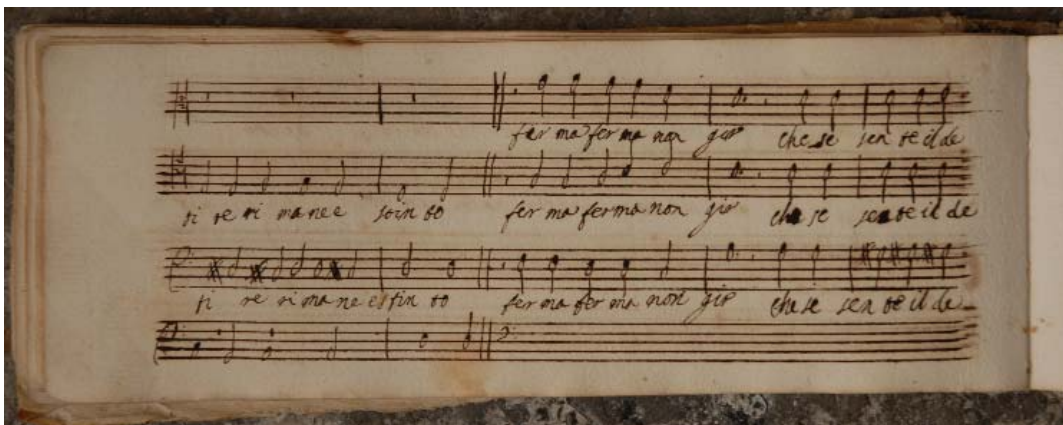 fer ma fer ma non gir che se sen te il de
ti re ri ma ne e stin to fer ma fer ma non gir che se sen te il de
ti re ri ma ne es tin to fer ma fer ma non gir che se sen te il de